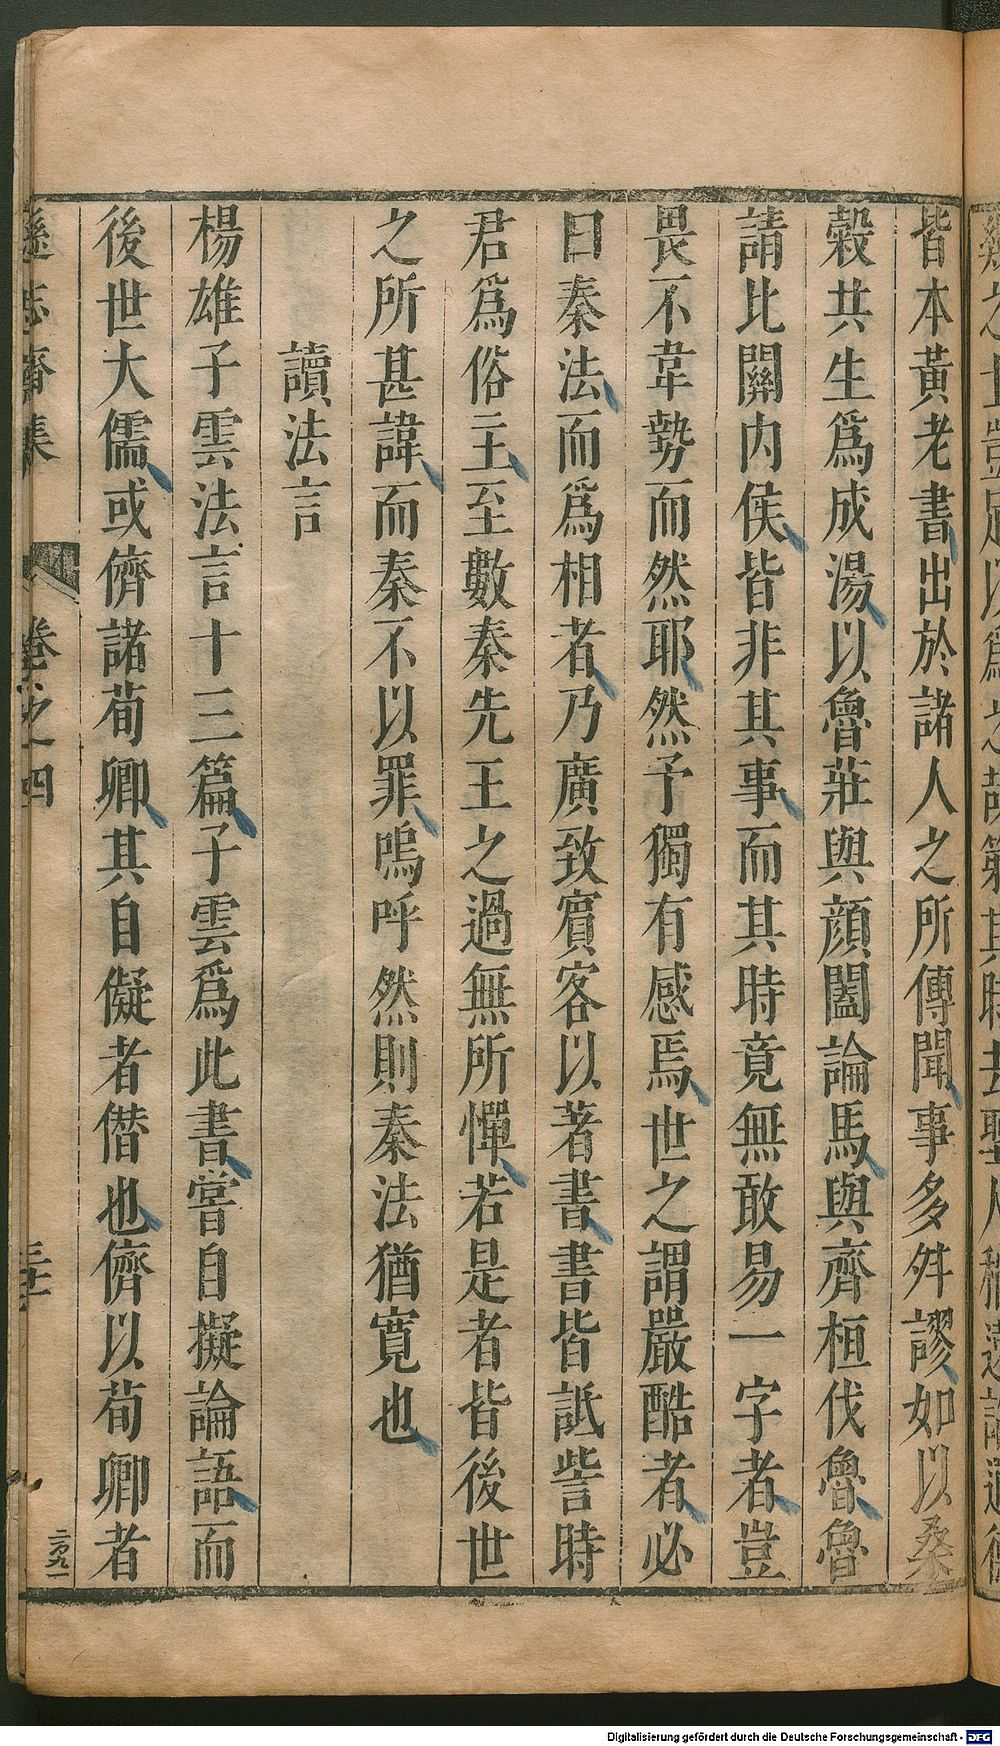 皆本黃老書出於諸人之所傳聞事多舛謬如以桑
穀共生爲成湯以魯莊與顔闔論馬與齊桓伐魯魯
請比關内侯皆非其事而其時竟無敢易一字者豈
畏不韋勢而然耶然予獨有感焉世之謂嚴酷者必
曰秦法而爲相者乃廣致賓客以著書書皆詆訾時
君爲俗主至數秦先王之過無所憚若是者皆後世
之所甚諱而秦不以罪嗚呼然則秦法猶寛也
讀法言
楊雄子雲法言十三篇子雲爲此書嘗自擬論語而
後世大儒或儕諸荀卿其自儗者僭也儕以荀卿者
遜志齋集
卷之四
二百九一
Digitalisierung gefördert durch die Deutsche Forschungsgemeinschaft - DFG